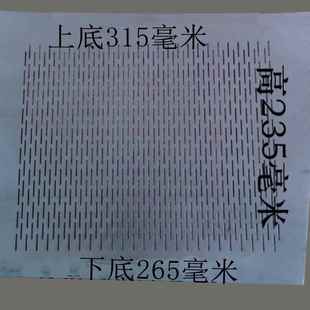 上底315毫米
高235毫米
下底265毫米